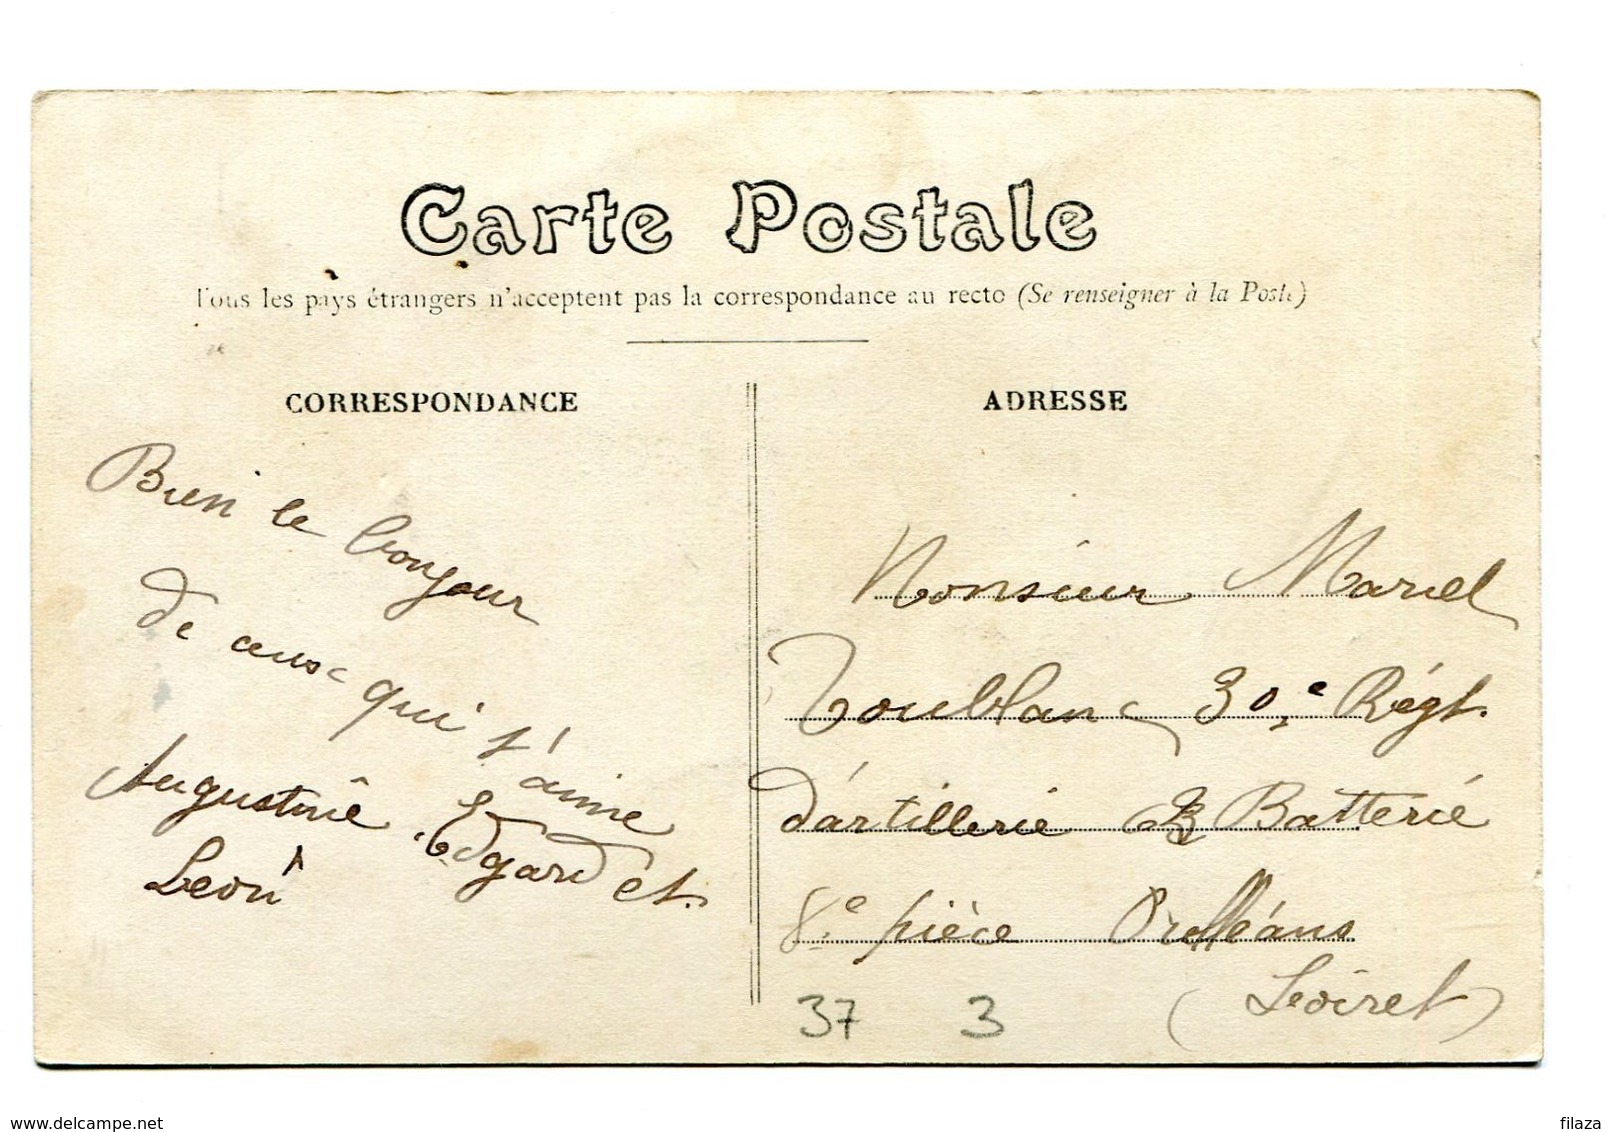 Carte Postale
Tous les pays étrangers n'acceptent pas la correspondance au recto (Se renseigner à la Poste)
CORRESPONDANCE
Bien le bonjour
de ceux qui s'aime
Augustine, Edgard et
Leon
ADRESSE
Monsieur Marcel
Toublanc 30e Régt.
d'artillerie Batterie
8e pièce Orlléans
(Loiret)
37 3
www.delcampe.net
filaza